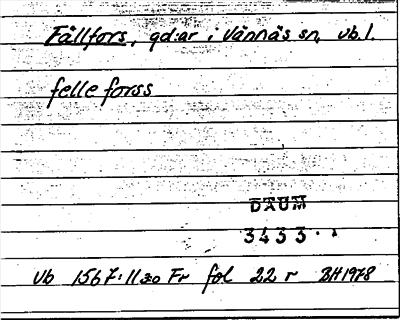 Fällfors, gd:ar i Vännäs sn, vb.l.
felle forss
DAUM
3433
Vb 1567:11 Fr fol 22 r BH 1978